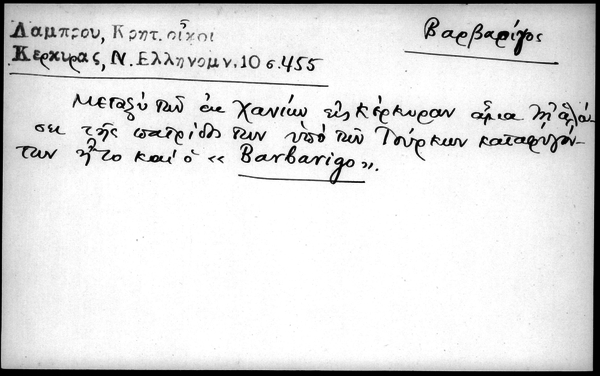 Λαμπρου, Κρητ. οἶκοι
Βαρβαρίγος
Κερκυρας, Ν. Ελληνομν. 10 σ. 455
Μεταξὺ τῶν ἐκ Χανίων εἰς Κέρκυραν ἅμα τῇ ἁλώ-
σει τῆς πατρίδος των ὑπὸ τῶν Τούρκων καταφυγόν-
των ἦτο καὶ ὁ « Barbarigo ».